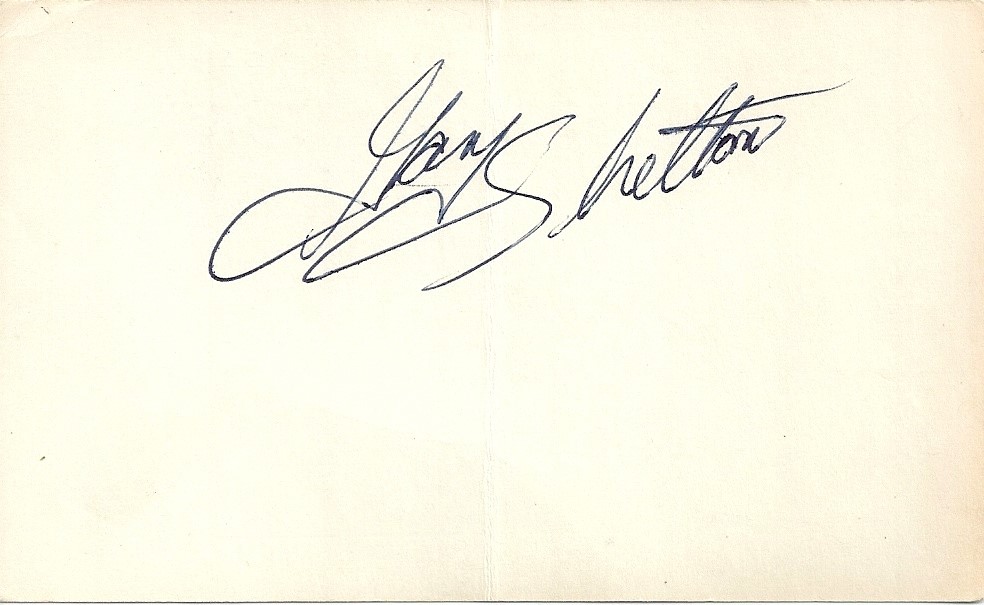 Gary Shelton